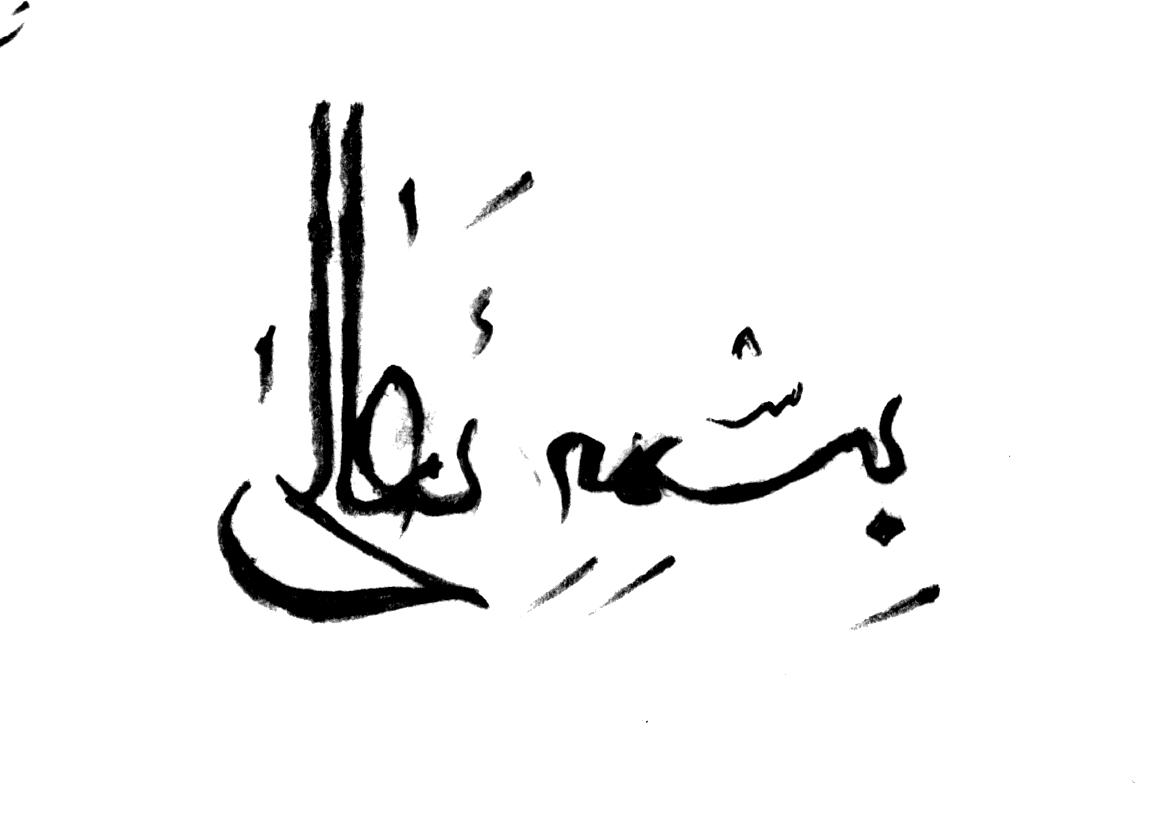 بِسْمِهِ تَعٰالىٰ